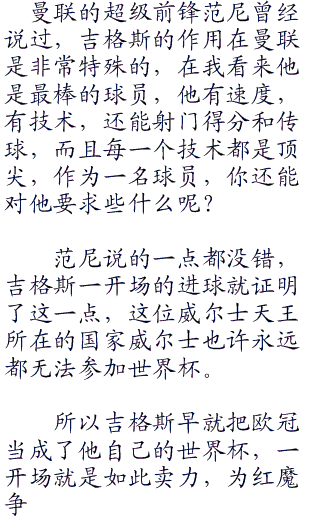 曼联的超级前锋范尼曾经
说过，吉格斯的作用在曼联
是非常特殊的，在我看来他
是最棒的球员，他有速度，
有技术，还能射门得分和传
球，而且每一个技术都是顶
尖，作为一名球员，你还能
对他要求些什么呢？
范尼说的一点都没错，
吉格斯一开场的进球就证明
了这一点，这位威尔士天王
所在的国家威尔士也许永远
都无法参加世界杯。
所以吉格斯早就把欧冠
当成了他自己的世界杯，一
开场就是如此卖力，为红魔
争